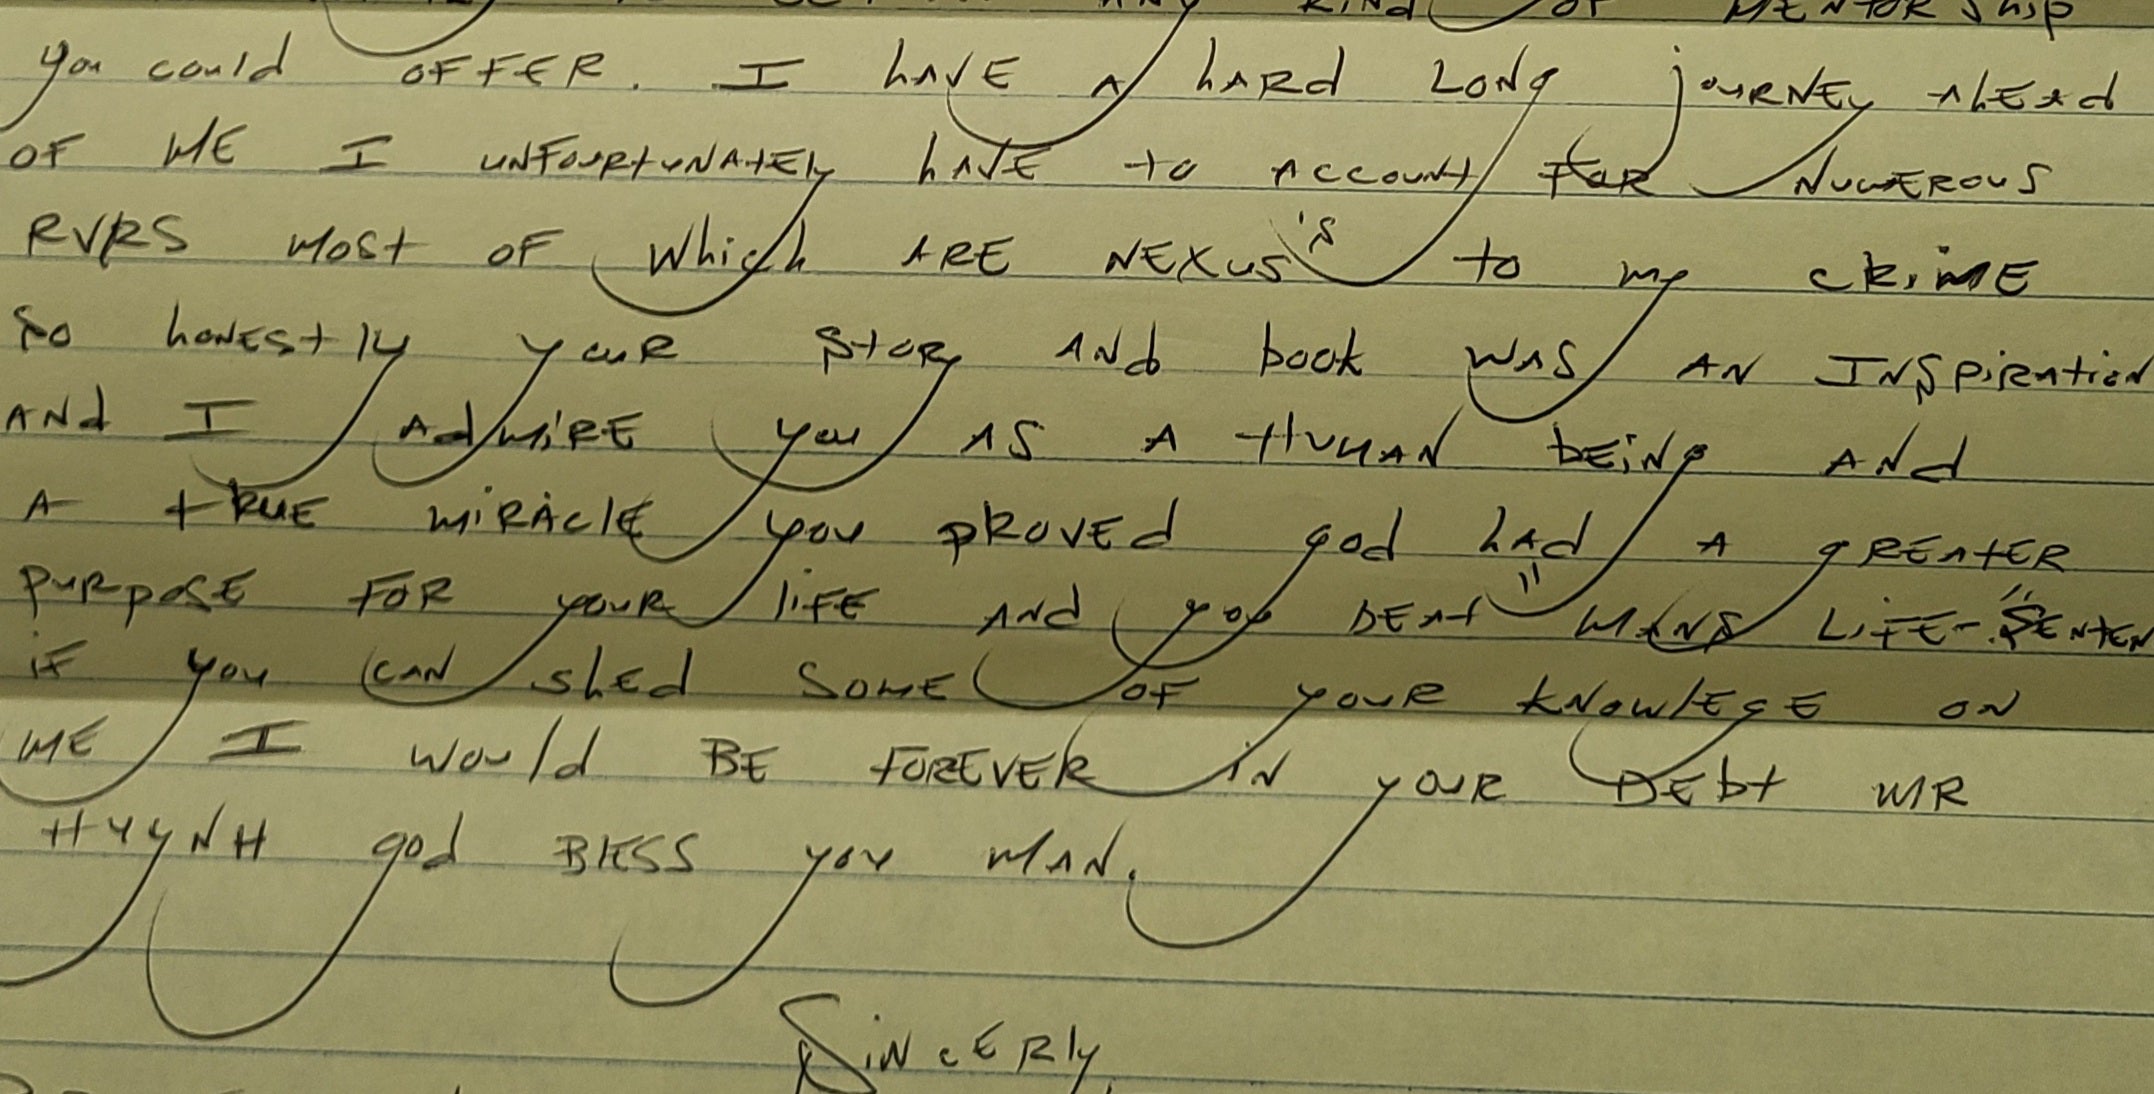 any kind of MENTORShip
you could OFFER. I hAVE A hARd LONg jOURNEy AhEAd
OF ME I UNFOURtUNAtEly hAVE to ACCOUNt FOR NUMEROUS
RVRS MOSt OF Which ARE NEXUS's to my CRiME
So hONEStly youR StORy ANd book WAS AN INSpiRAtiON
ANd I AdMiRE you AS A HUMAN bEiNg ANd
A tRUE MiRAClE you pROVEd god hAd A gREAtER
PURpOSE FOR youR liFE ANd you "BEAt" MANS LiFE-"SENtEN
iF you CAN shEd SOME OF youR kNOwlEgE ON
ME I Would BE FOREVER iN yOUR DEbt MR
HUYNH god BlESS you MAN.
SiNcERly,